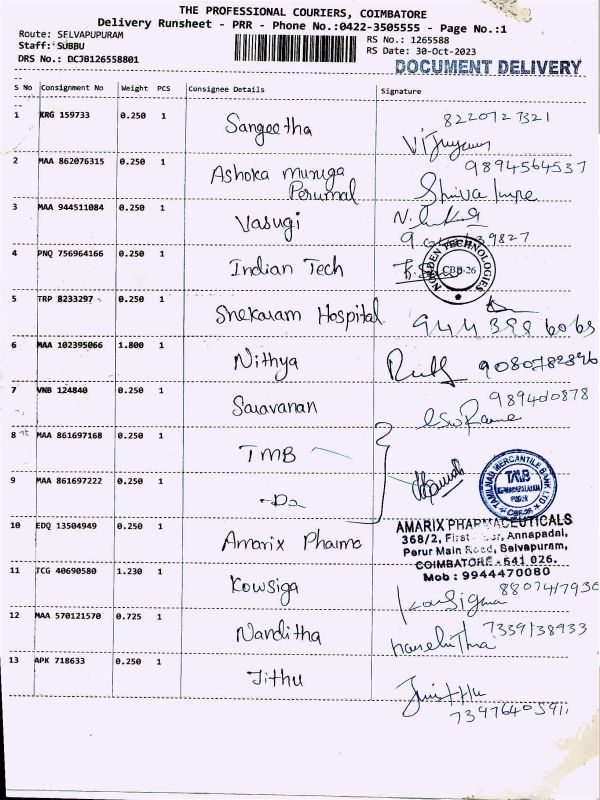 THE PROFESSIONAL COURIERS, COIMBATORE
Delivery Runsheet - PRR - Phone No.:0422-3505555 - Page No.:1
Route: SELVAPUPURAM
Staff: SUBBU
DRS No.: DCJB126558801
RS No.: 1265588
RS Date: 30-Oct-2023
DOCUMENT DELIVERY
S No Consignment No Weight PCS Consignee Details Signature
1 KRG 159733 0.250 1 Sangeetha 8220727321
2 MAA 862076315 0.250 1 Ashoka muruga Perumal 9894564537
3 MAA 944511084 0.250 1 Vasugi
4 PNQ 756964166 0.250 1 Indian Tech
NORDEN TECHNOLOGIES
CBE-26
5 TRP 8233297 0.250 1 Shekaram Hospital 944 398 6065
6 MAA 102395066 1.800 1 Nithya
7 VNB 124840 0.250 1 Saravanan 9894040878
8 MAA 861697168 0.250 1 TMB
9 MAA 861697222 0.250 1 -Do
TAMILNAD MERCANTILE BANK LTD
TMB
10 EDQ 13504949 0.250 1 Amarix Pharma
AMARIX PHARMACEUTICALS
368/2, First Annapadai,
Perur Main Road, Selvapuram,
COIMBATORE - 641 026.
Mob : 9944470080
11 TCG 40690580 1.230 1 Kowsiga Kousigaa
12 MAA 570121570 0.725 1 Nanditha 7339138933
13 APK 718633 0.250 1 Jithu